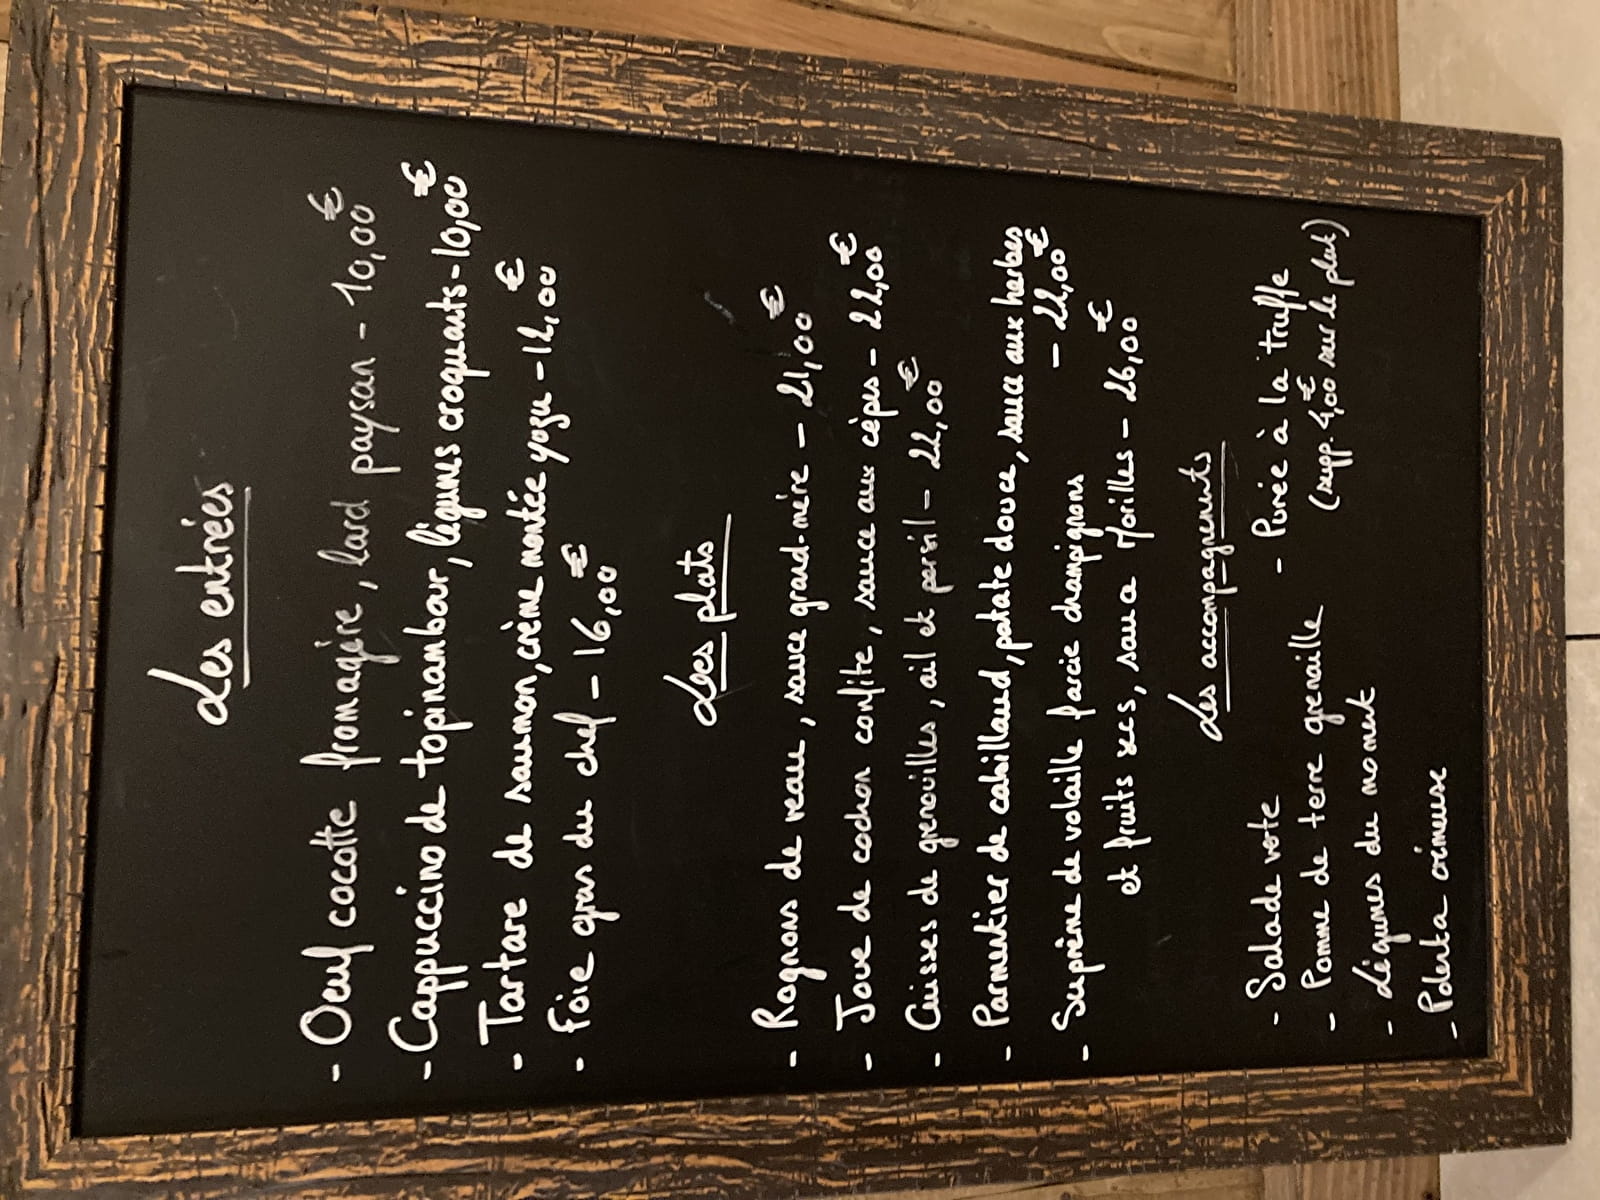 Les entrées
- Oeuf cocotte fromagère, lard paysan - 10,00€
- Cappuccino de topinambour, légumes croquants - 10,00€
- Tartare de saumon, crème montée yuzu - 12,00€
- Foie gras du chef - 16,00€
Les plats
- Rognons de veau, sauce grand-mère - 21,00€
- Joue de cochon confite, sauce aux cèpes - 22,00€
- Cuisses de grenouilles, ail et persil - 22,00€
- Parmentier de cabillaud, patate douce, sauce aux herbes
- 22,00€
- Suprême de volaille farcie champignons
et fruits secs, sauce Morilles - 26,00€
Les accompagnements
- Salade verte
- Pomme de terre grenaille
- Légumes du moment
- Polenta crémeuse
- Purée à la truffe
(supp. 4,00€ sur le plat)